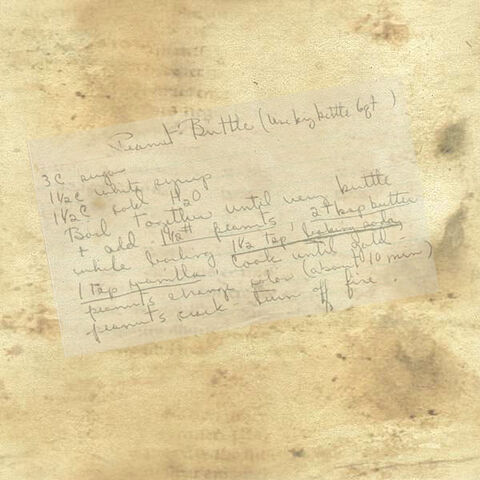 Peanut Brittle (Use big kettle 6qt)
3 C sugar
1 1/2 C white syrup
1 1/2 C cold H2O
Boil together until very brittle
+ add 1 1/2 # peanuts 2 tbsp butter
while boiling, 1 1/2 tsp baking soda,
1 tsp vanilla, Cook until
peanuts change color (about 10 min)
peanuts crack turn off fire.